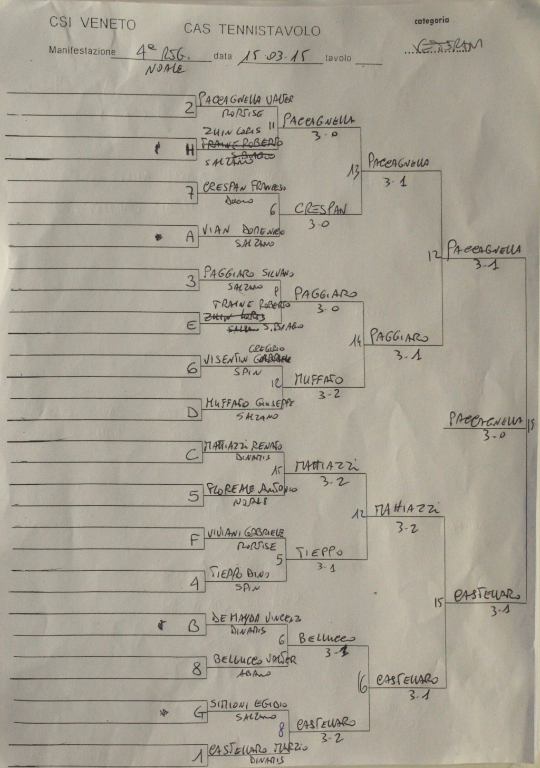 CSI VENETO CAS TENNISTAVOLO categoria
Manifestazione 4ª data 15 03.15 tavolo
NOALE
2 PACCAGNELLA VALTER
MORTISE
11 PACCAGNELLA
3-0
ZUIN LORIS
H TRAINE ROBERTO
SALZANO
13 PACCAGNELLA
3-1
7 CRESPAN FRANCESCO
6 CRESPAN
3-0
A VIAN DOMENICO
SALZANO
12 PACCAGNELLA
3-1
3 PAGGIARO SILVANO
SALZANO
PAGGIARO
3-0
TRAINE ROBERTO
E ZUIN LORIS
S.BIAGIO
14 PAGGIARO
3-1
GREGORIO
6 VISENTIN GABRIELE
SPIN
12 MUFFATO
3-2
D MUFFATO GIUSEPPE
SALZANO
PACCAGNELLA
3-0
C MATTIAZZI RENATO
DINAMIS
15 MATTIAZZI
3-2
5 FLOREALE ANTONIO
NOALE
12 MATTIAZZI
3-2
F VIVIANI GABRIELE
MORTISE
5 TIEPPO
3-1
4 TIEPPO DINO
SPIN
15 CASTELLARO
3-1
B DE MAYDA VINCENZ
DINAMIS
6 BELLUCCO
8 BELLUCCO VALTER
ABANO
16 CASTELLARO
3-1
G SIMIONI EGIDIO
SALZANO
8 CASTELLARO
3-2
1 CASTELLARO MARZIO
DINAMIS